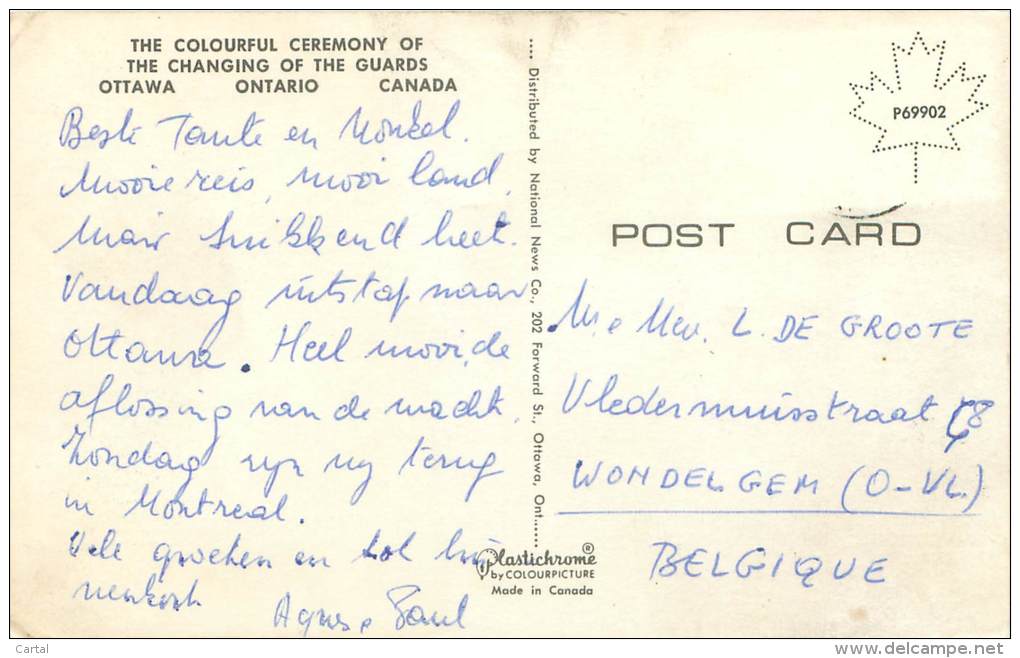 THE COLOURFUL CEREMONY OF
THE CHANGING OF THE GUARDS
OTTAWA ONTARIO CANADA
Beste Tante en Nonkel.
Mooie reis, mooi land,
Maar snikkend heet.
Vandaag uitstap naar
Ottawa. Heel mooi, de
aflossing van de wacht.
Zondag zijn wij terug
in Montreal.
Vele groeten en tot
Agnes e Paul
Distributed by National News Co., 202 Forward St., Ottawa, Ont.
Plastichrome®
by COLOURPICTURE
Made in Canada
P69902
POST CARD
M. e Mev. L. DE GROOTE
Vledermuisstraat
WONDELGEM (O-VL.)
BELGIQUE
Cartal
delcampe.net